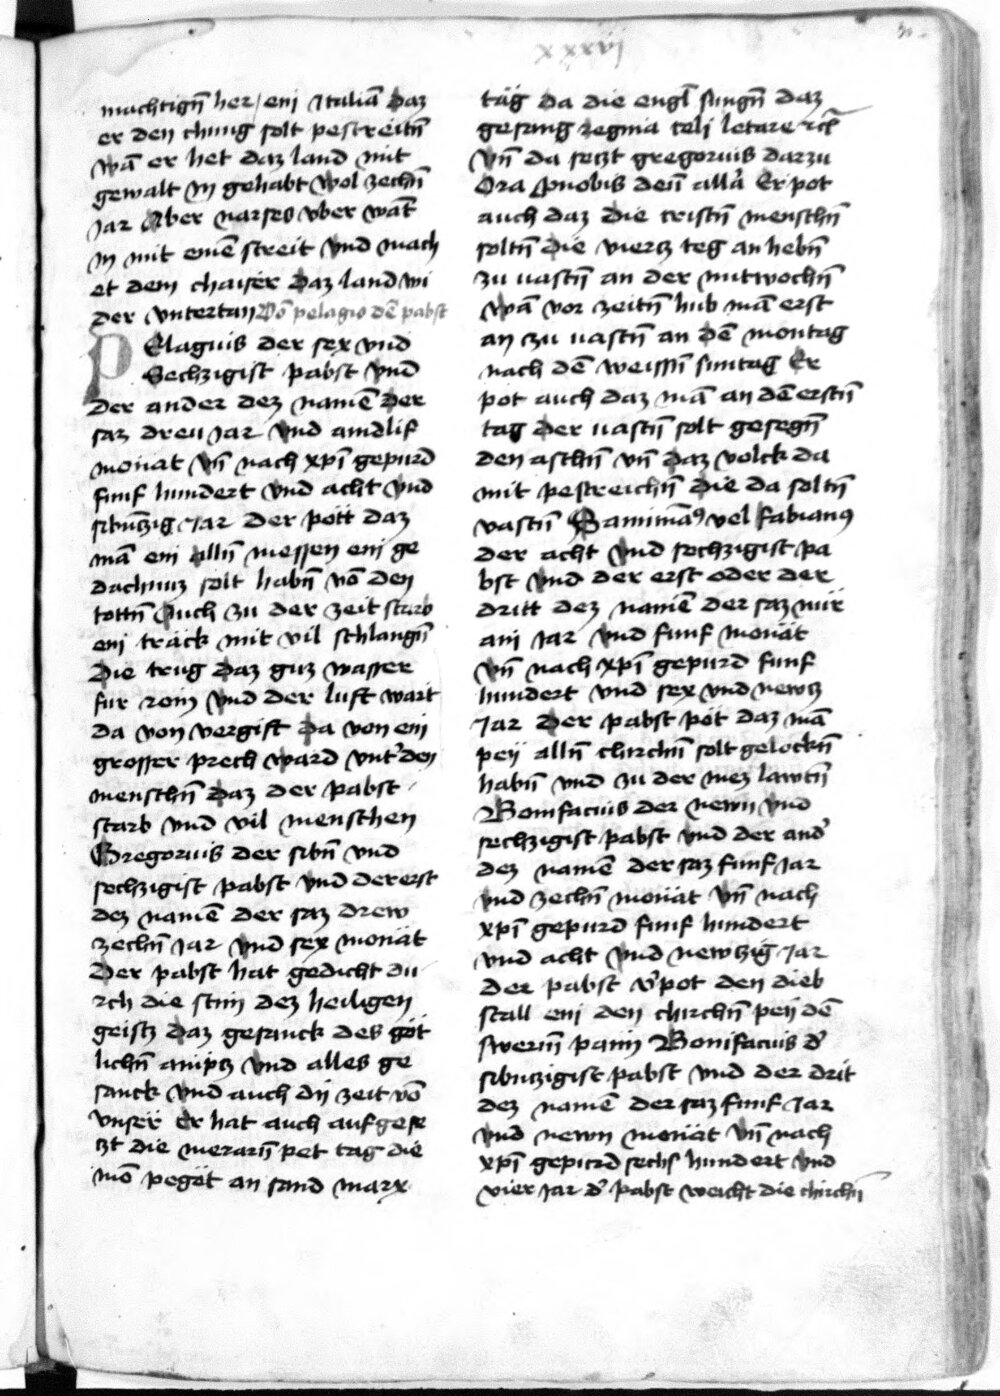 xxxvj
machtign̄ her / eni Italiā daz
er den chunig solt pestreitn̄
wā er het daz land mit
gewalt in gehabt wol zechn̄
jar Aber narses vber wāt
in mit einē streit vnd mach
et dem chaiser daz land wi
der vntertan Vō pelagio dē pabst
PElagius der sex vnd
Sechzigist pabst vnd
der ander dez namē der
saz dreu jar vnd aindlif
monat vn̄ nach xp̄i gepurd
funf hundert vnd acht vnd
sibn̄zig Jar der pott daz
mā eni alln̄ messen eni ge
dachnuz solt habn̄ vō den
tottn̄ Auch zu der zeit starb
eni träck mit vil schlangn̄
die trug daz guz wasser
fur rom vnd der luft wart
da von vergift da von eni
grosser prech ward vnt' den
menschn̄ daz der pabst
starb vnd vil menschen
Gregorius der sibn̄ vnd
sechzigist pabst vnd der erst
dez namē der saz drew
zechn̄ jar vnd sex monät
Der pabst hat gedicht du
rch die stim dez heiligen
geistz daz gesanck des göt
lichn̄ amptz vnd alles ge
sanck vnd auch dij zeit vō
vnser Er hat auch aufgese
tzt die merarn̄ pet tag die
mō pegät an sand marx
täg da die engl̄ sungn̄ daz
gesang regina celi letare etc̄
vn̄ da setzt gregorius darzu
Ora pnobis deū all'a Er pot
auch daz die cristn̄ menschn̄
soltn̄ die viertz teg an hebn̄
zu vastn̄ an der mitwochn̄
wā vor zeitn̄ hub mā erst
an zu vastn̄ an dē montag
nach dē weissn̄ suntag Er
pot auch daz mā an dē erstn̄
tag der vastn̄ solt gesegn̄
den aschn̄ vn̄ daz volck da
mit pestreichn̄ die da soltn̄
vastn̄ Saminiā9 vel fabian9
der acht vnd sechzigist pa
bst vnd der erst oder der
dritt dez namē der saz nür
ain jar vnd funf monät
vn̄ nach xp̄i gepurd funf
hundert vnd sex vnd newtz
Jar der pabst pöt daz mā
peÿ alln̄ chirchn̄ solt gelockn̄
habn̄ vnd zu der mez lawtn̄
Bonifacius der newn vnd
sechzigist pabst vnd der and'
dez namē der saz funf Jar
vnd zechn̄ monät vn̄ nach
xp̄i gepurd funf hundert
vnd acht vnd newtzig Jar
der pabst v'pot den dieb
stall eni den chirchn̄ peÿ dē
swerin̄ pann Bonifacius d'
sibntzigist pabst vnd der drit
dez namē der saz funf Jar
vnd newn monät vn̄ nach
xp̄i gepurd sechs hundert vnd
vier jar d' pabst weicht die chirchn̄